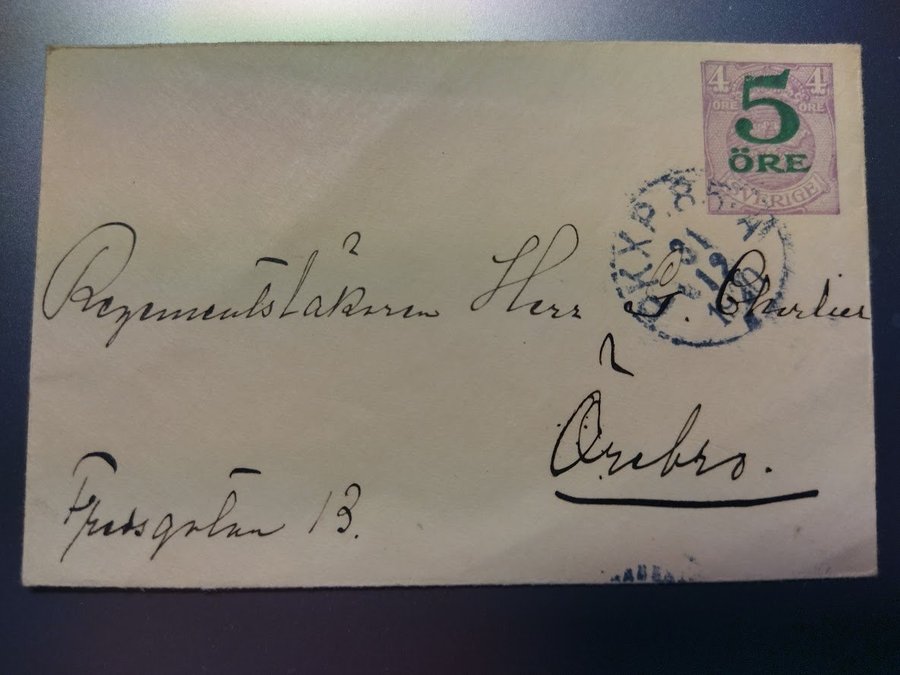 4 4
ÖRE ÖRE
5
ÖRE
SVERIGE
PKXP. 85
31
12
Regementsläkaren Herr G. Charlier
Örebro.
Fredsgatan 13.